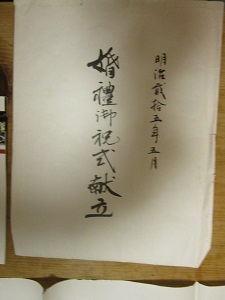 明治貳拾五年五月
婚禮御祝式献立